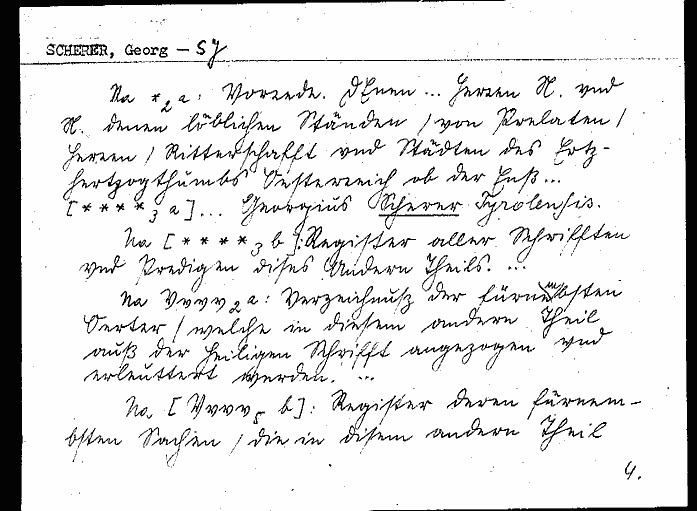 SCHERER, Georg – SJ
Na *2a: Vorrede. DEnen ... Herren N. vnd
N. denen löblichen Ständen / von Prelaten /
Herren / Ritterschafft vnd Städten des Ertz-
hertzogthumbs Oesterreich ob der Enß...
[****3a]... Georgius Scherer Tyrolensis.
Na [****3b]: Register aller Schrifften
vnd Predigen dises Andern Theils. ...
Na Vvvv2a: Verzeichnuß der fürnembsten
Oerter / welche in diesem andern Theil
auß der Heiligen Schrifft angezogen vnd
erleuttert werden. ...
Na [Vvvv5b]: Register deren fürnem-
bsten Sachen / die in disem andern Theil
4.